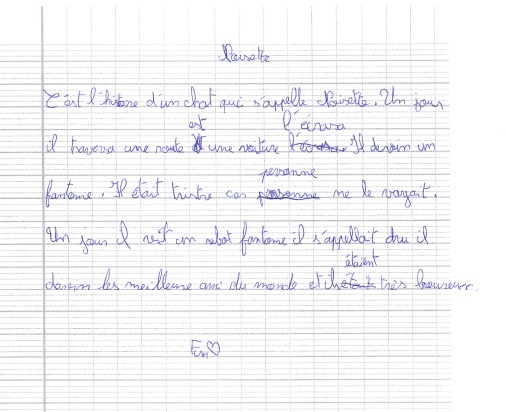 Noisette
C'est l'histoire d'un chat qui s'appelle Noisette. Un jour
est l'écrasa
il traversa une route et une voiture l'écrasa. Il devein un
personne
fantome. Il était tristre car personne ne le voyait.
Un jour il vit un robot fantome il s'appellait dru il
étaient
devein les meilleure ami du monde et ils très heureux.
En♡